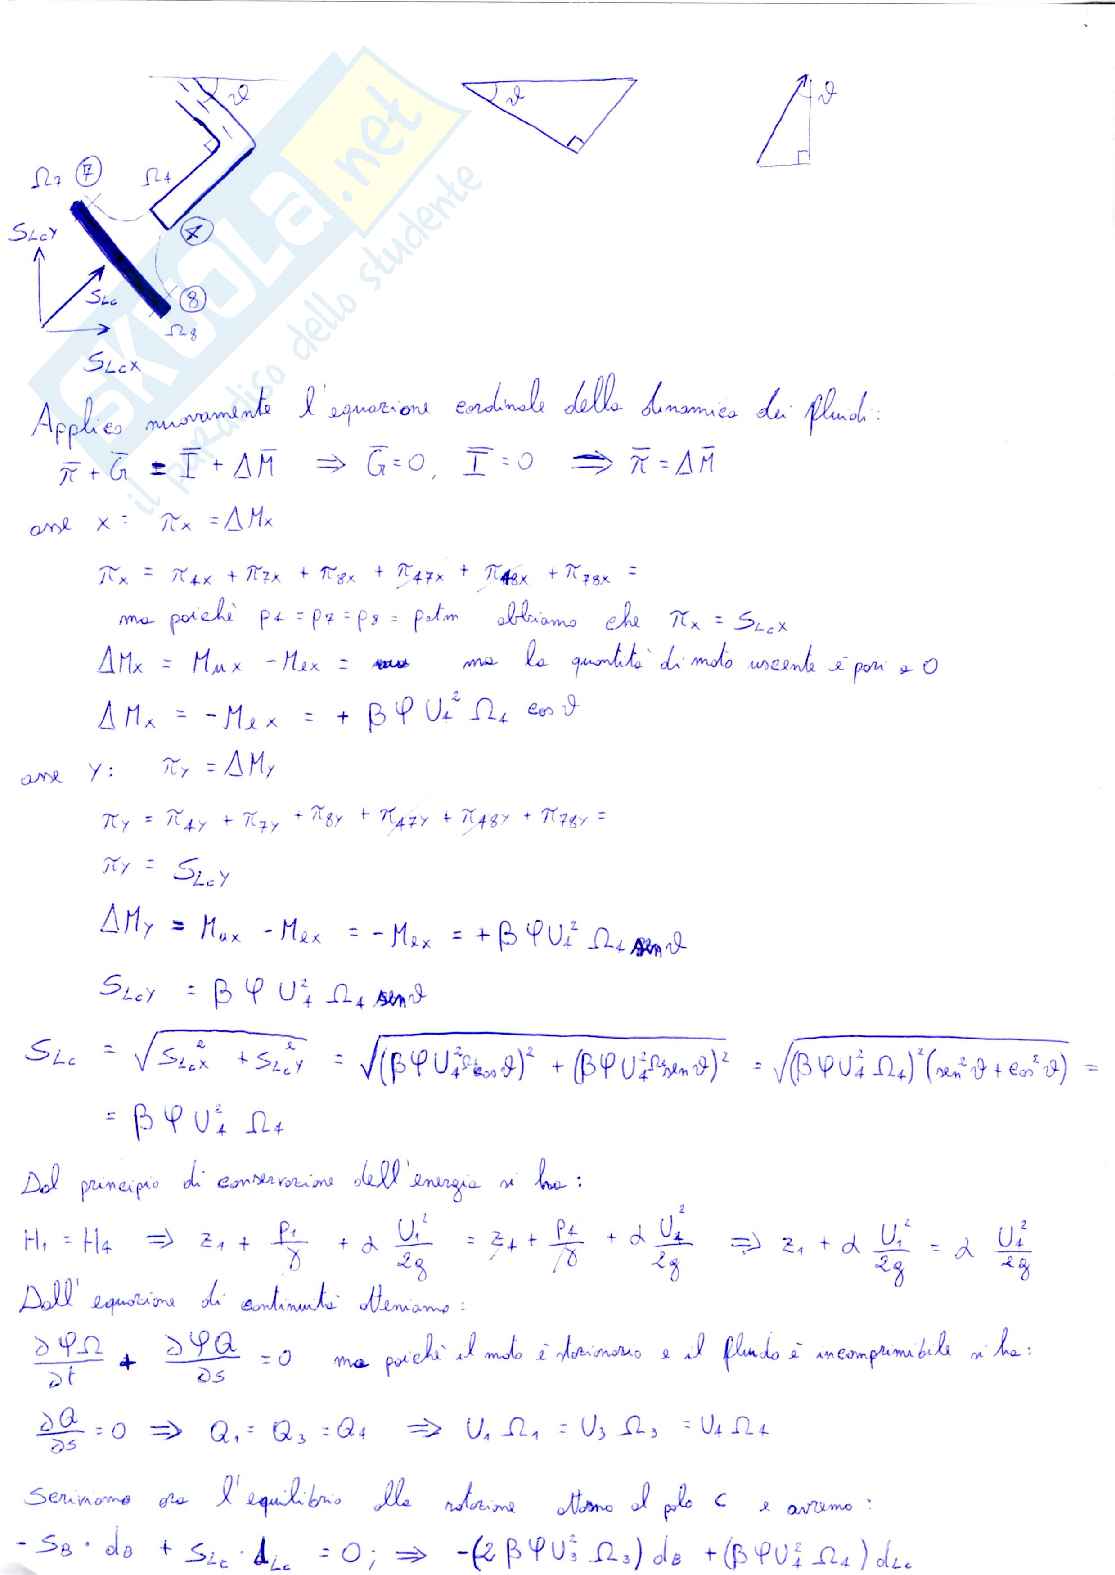 ϑ ϑ ϑ
Ω₇ ⑦ Ω₄
④
S_LcY
S_Lc ⑧
Ω₈
S_LcX
SKUOLA.net
il paradiso dello studente
Applico nuovamente l'equazione cardinale della dinamica dei fluidi:
π̄ + Ḡ = Ī + ΔM̄ ⇒ Ḡ=0, Ī=0 ⇒ π̄ = ΔM̄
asse x: πx = ΔMx
πx = π4x + π7x + π8x + π47x + π48x + π78x =
ma poiché p4 = p7 = p8 = patm abbiamo che πx = S_Lcx
ΔMx = Mux - Mex = ma la quantità di moto uscente è pari a 0
ΔMx = -Mex = + β φ U₄² Ω₄ cosϑ
asse Y: πY = ΔMY
πY = π4Y + π7Y + π8Y + π47Y + π48Y + π78Y =
πY = S_LcY
ΔMY = Mux - Mex = - Mex = + β φ U₄² Ω₄ senϑ
S_LcY = β φ U₄² Ω₄ senϑ
S_Lc = √(S_Lcx² + S_LcY²) = √((βφU₄²Ω₄cosϑ)² + (βφU₄²Ω₄senϑ)²) = √((βφU₄²Ω₄)²(sen²ϑ + cos²ϑ)) =
= β φ U₄² Ω₄
Dal principio di conservazione dell'energia si ha:
H₁ = H₄ ⇒ z₁ + p₁/γ + α U₁²/2g = z₄ + p₄/γ + α U₄²/2g ⇒ z₁ + α U₁²/2g = α U₄²/2g
Dall'equazione di continuità otteniamo:
∂φΩ/∂t + ∂φQ/∂s = 0 ma poiché il moto è stazionario e il fluido è incomprimibile si ha:
∂Q/∂s = 0 ⇒ Q₁ = Q₃ = Q₄ ⇒ U₁Ω₁ = U₃Ω₃ = U₄Ω₄
Scriviamo ora l'equilibrio alla rotazione attorno al polo C e avremo:
- S_B · d_B + S_Lc · d_Lc = 0; ⇒ -(2βφU₃²Ω₃)d_B + (βφU₄²Ω₄)d_Lc